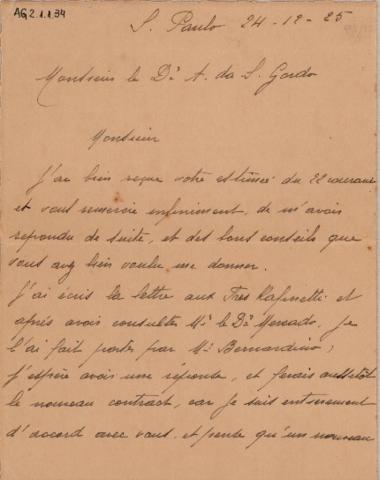 AG.2.1.1.34
S. Paulo 24-12-25
Monsieur le Dr A. da S. Gordo
Monsieur
J'ai bien reçue votre estimée du 22 courant
et vous remercie infiniment, de m'avois
repondu de suite, et des bons conseils que
vous avez bien voulu me donner.
J'ai écris la lettre aux et
après avois consulter Mr le Dr Mercado, je
l'ai fait porter par Mr Bernardino;
j'espère avois une reponse, et ferais aussitôt
le nouveau contract, car je suis entierement
d'acord avec vous, et pense qu'un nouveau